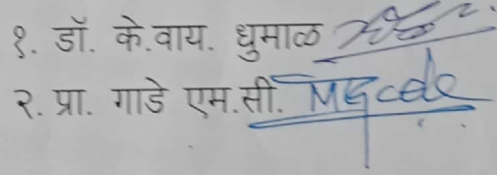 १. डॉ. के.वाय. धुमाळ
२. प्रा. गाडे एम.सी. MGade